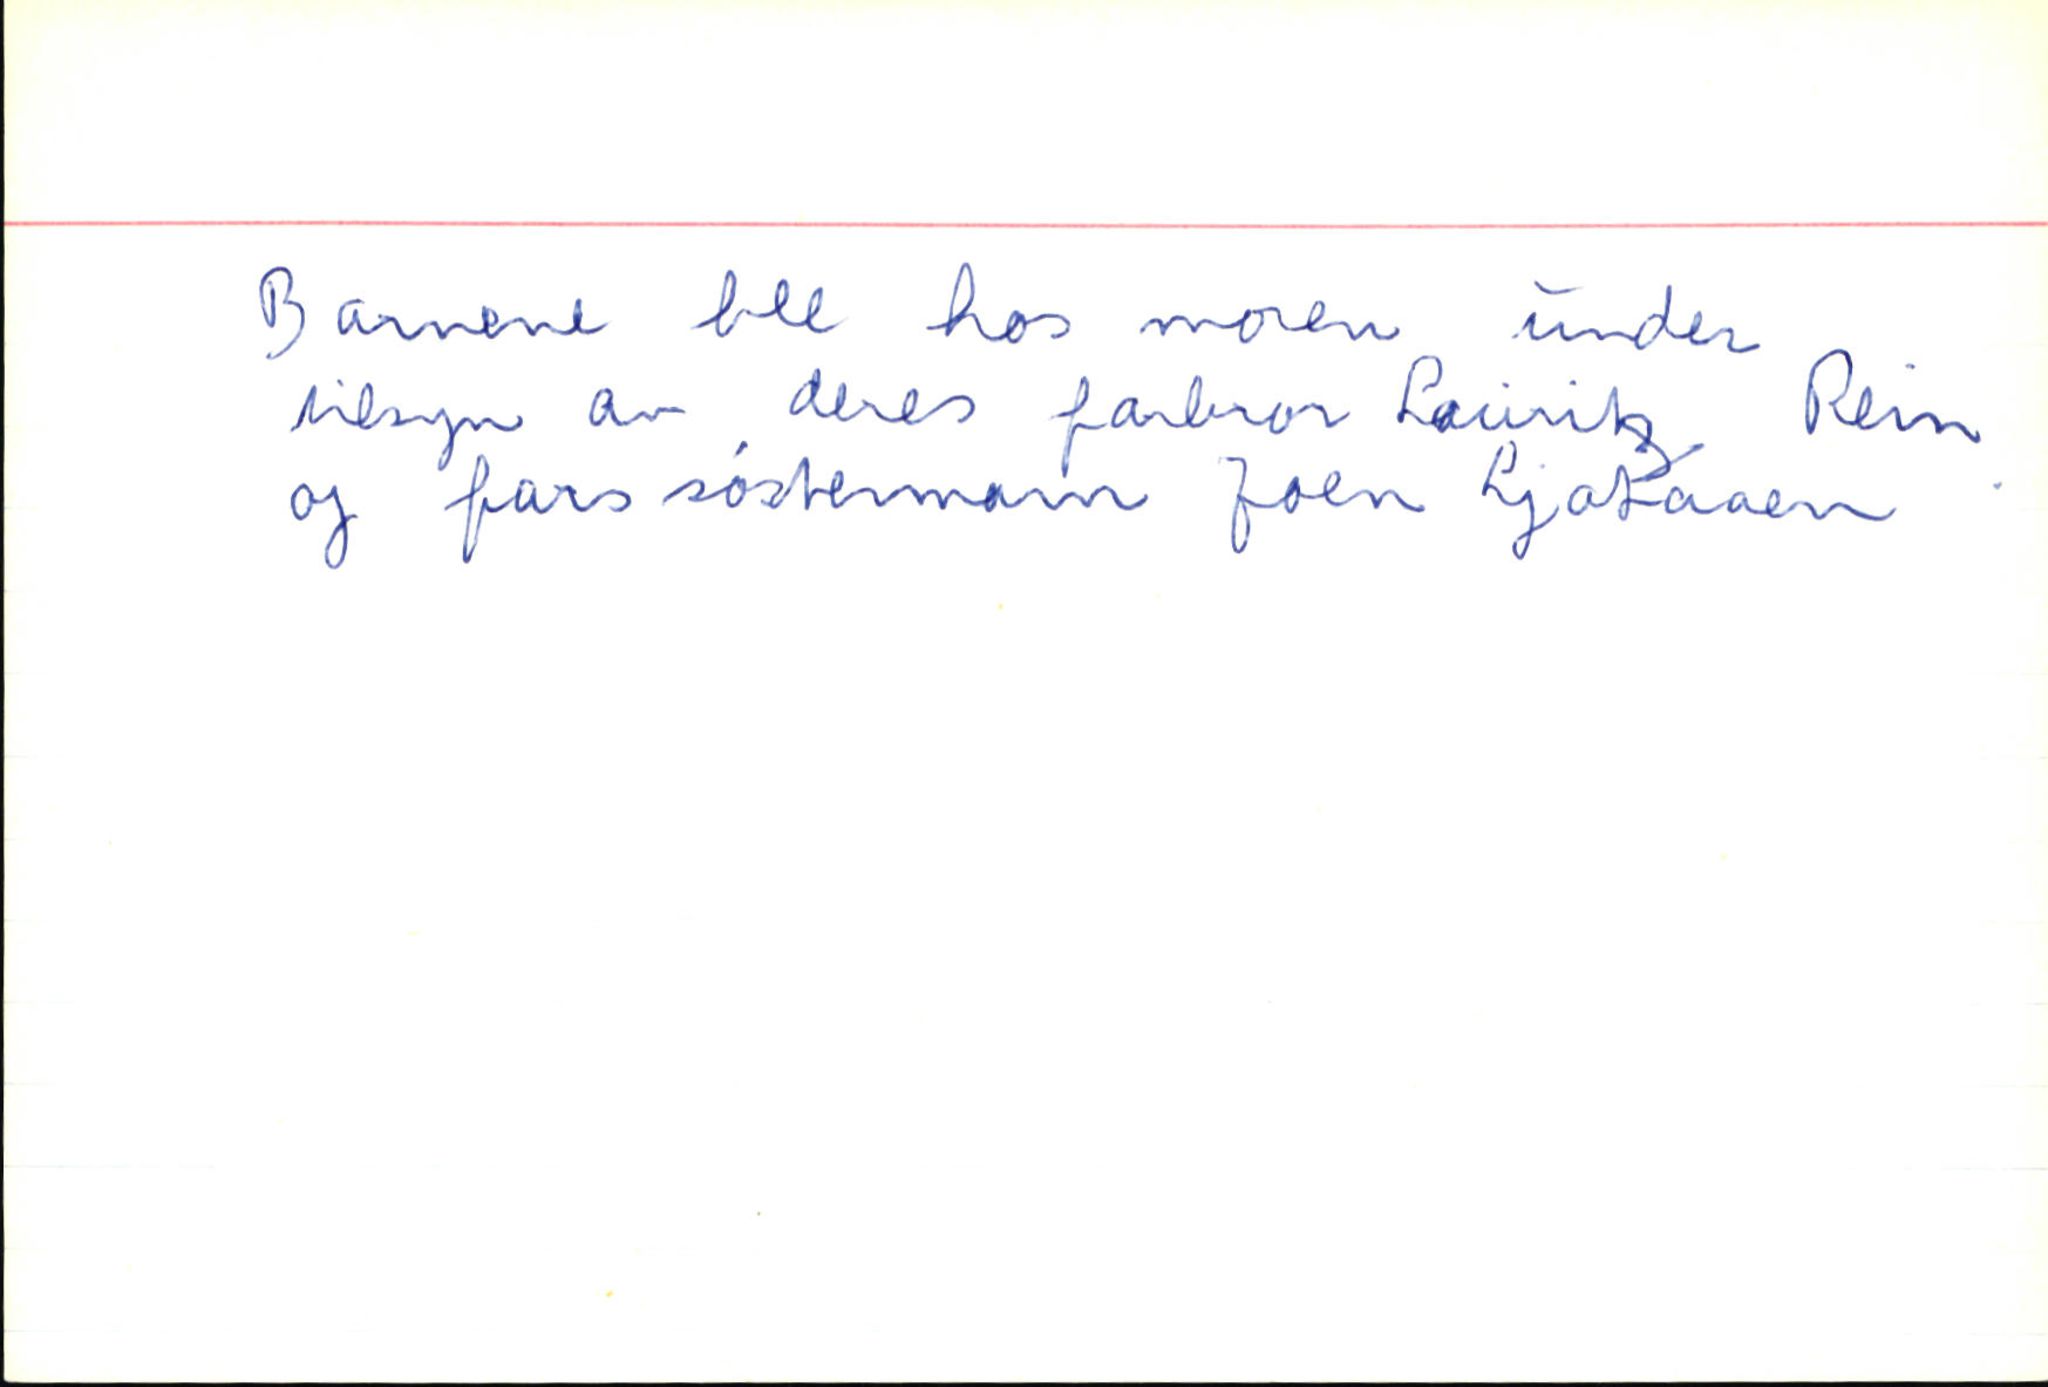 Barnene ble hos moren under
tilsyn av deres farbror Lauritz Rein
og fars søstermann Joen Ljøkaaen